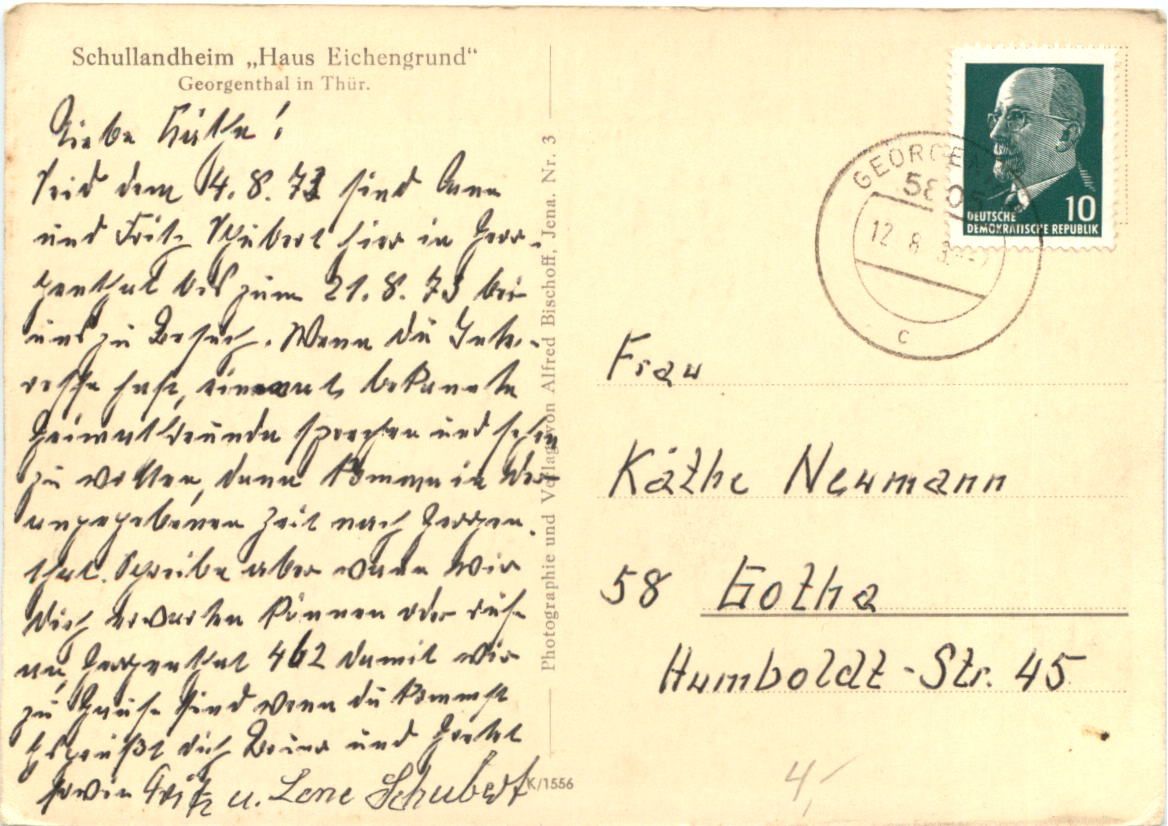 Schullandheim „Haus Eichengrund“
Georgenthal in Thür.
Liebe Käthe!
Seid dem 4.8.73 sind Lena
und Fritz Schubert hier in Geor-
genthal bis zum 21.8.73 bei
uns zu Besuch. Wenn du Inte-
resse hast, einmal, bekannte
Heimatfreunde sprechen und sehen
zu wollen, dann komme in der
angegebenen Zeit nach Georgen-
thal. Schreibe aber wann wir
dich erwarten können oder rufe
an, Georgenthal 462 damit wir
zu Hause sind wenn du kommst
Es grüßt dich und Gretel
sowie Fritz u. Lene Schubert
K/1556
Photographie und Verlag von Alfred Bischoff, Jena. Nr. 3
GEORGENTHAL
5805
12.8.
c
10
DEUTSCHE
DEMOKRATISCHE REPUBLIK
Frau
Käthe Neumann
58 Gotha
Humboldt-Str. 45
4,-